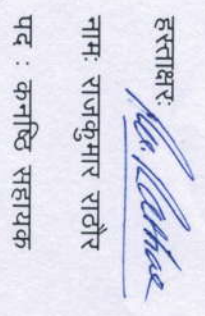 हस्ताक्षर:
नामः राजकुमार राठौर
पद : कनिष्ठ सहायक